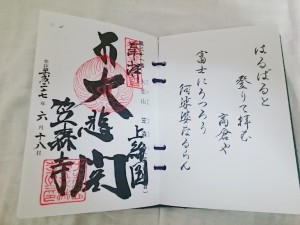 はるばると
登りて拝む
高倉や
富士にうつろう
阿娑婆なるらん
上総国
奉拝
大悲閣
笠森寺
平成二七年 六月十八日